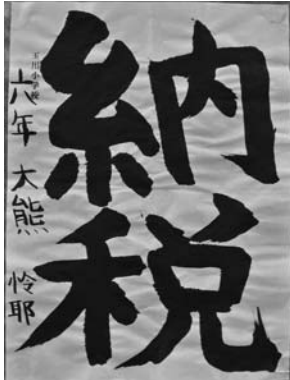 納税
玉川小学校
六年 大熊 怜耶